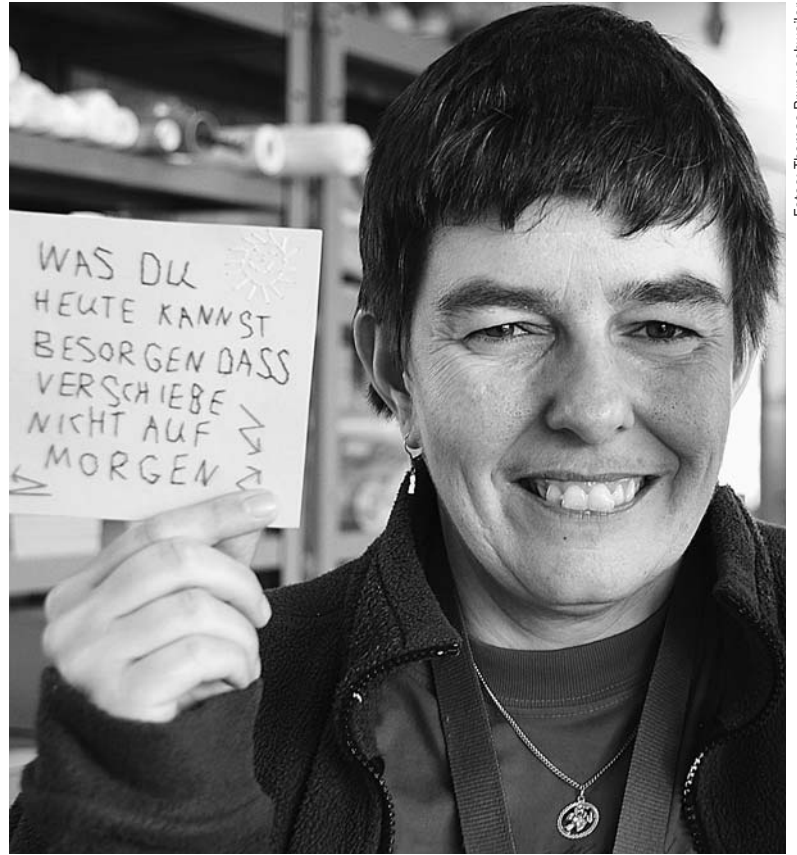 WAS DU
HEUTE KANNST
BESORGEN DASS
VERSCHIEBE
NICHT AUF
MORGEN